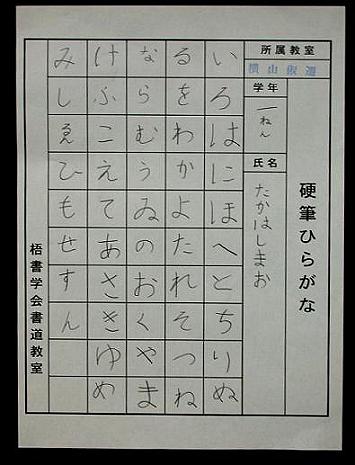 硬筆ひらがな
所属教室
横山
学年
一ねん
氏名
たかはしまお
いろはにほへとちりぬ
るをわかよたれそつね
ならむうゐのおくやま
けふこえてあさきゆめ
みしゑひもせすん
梧書学会書道教室